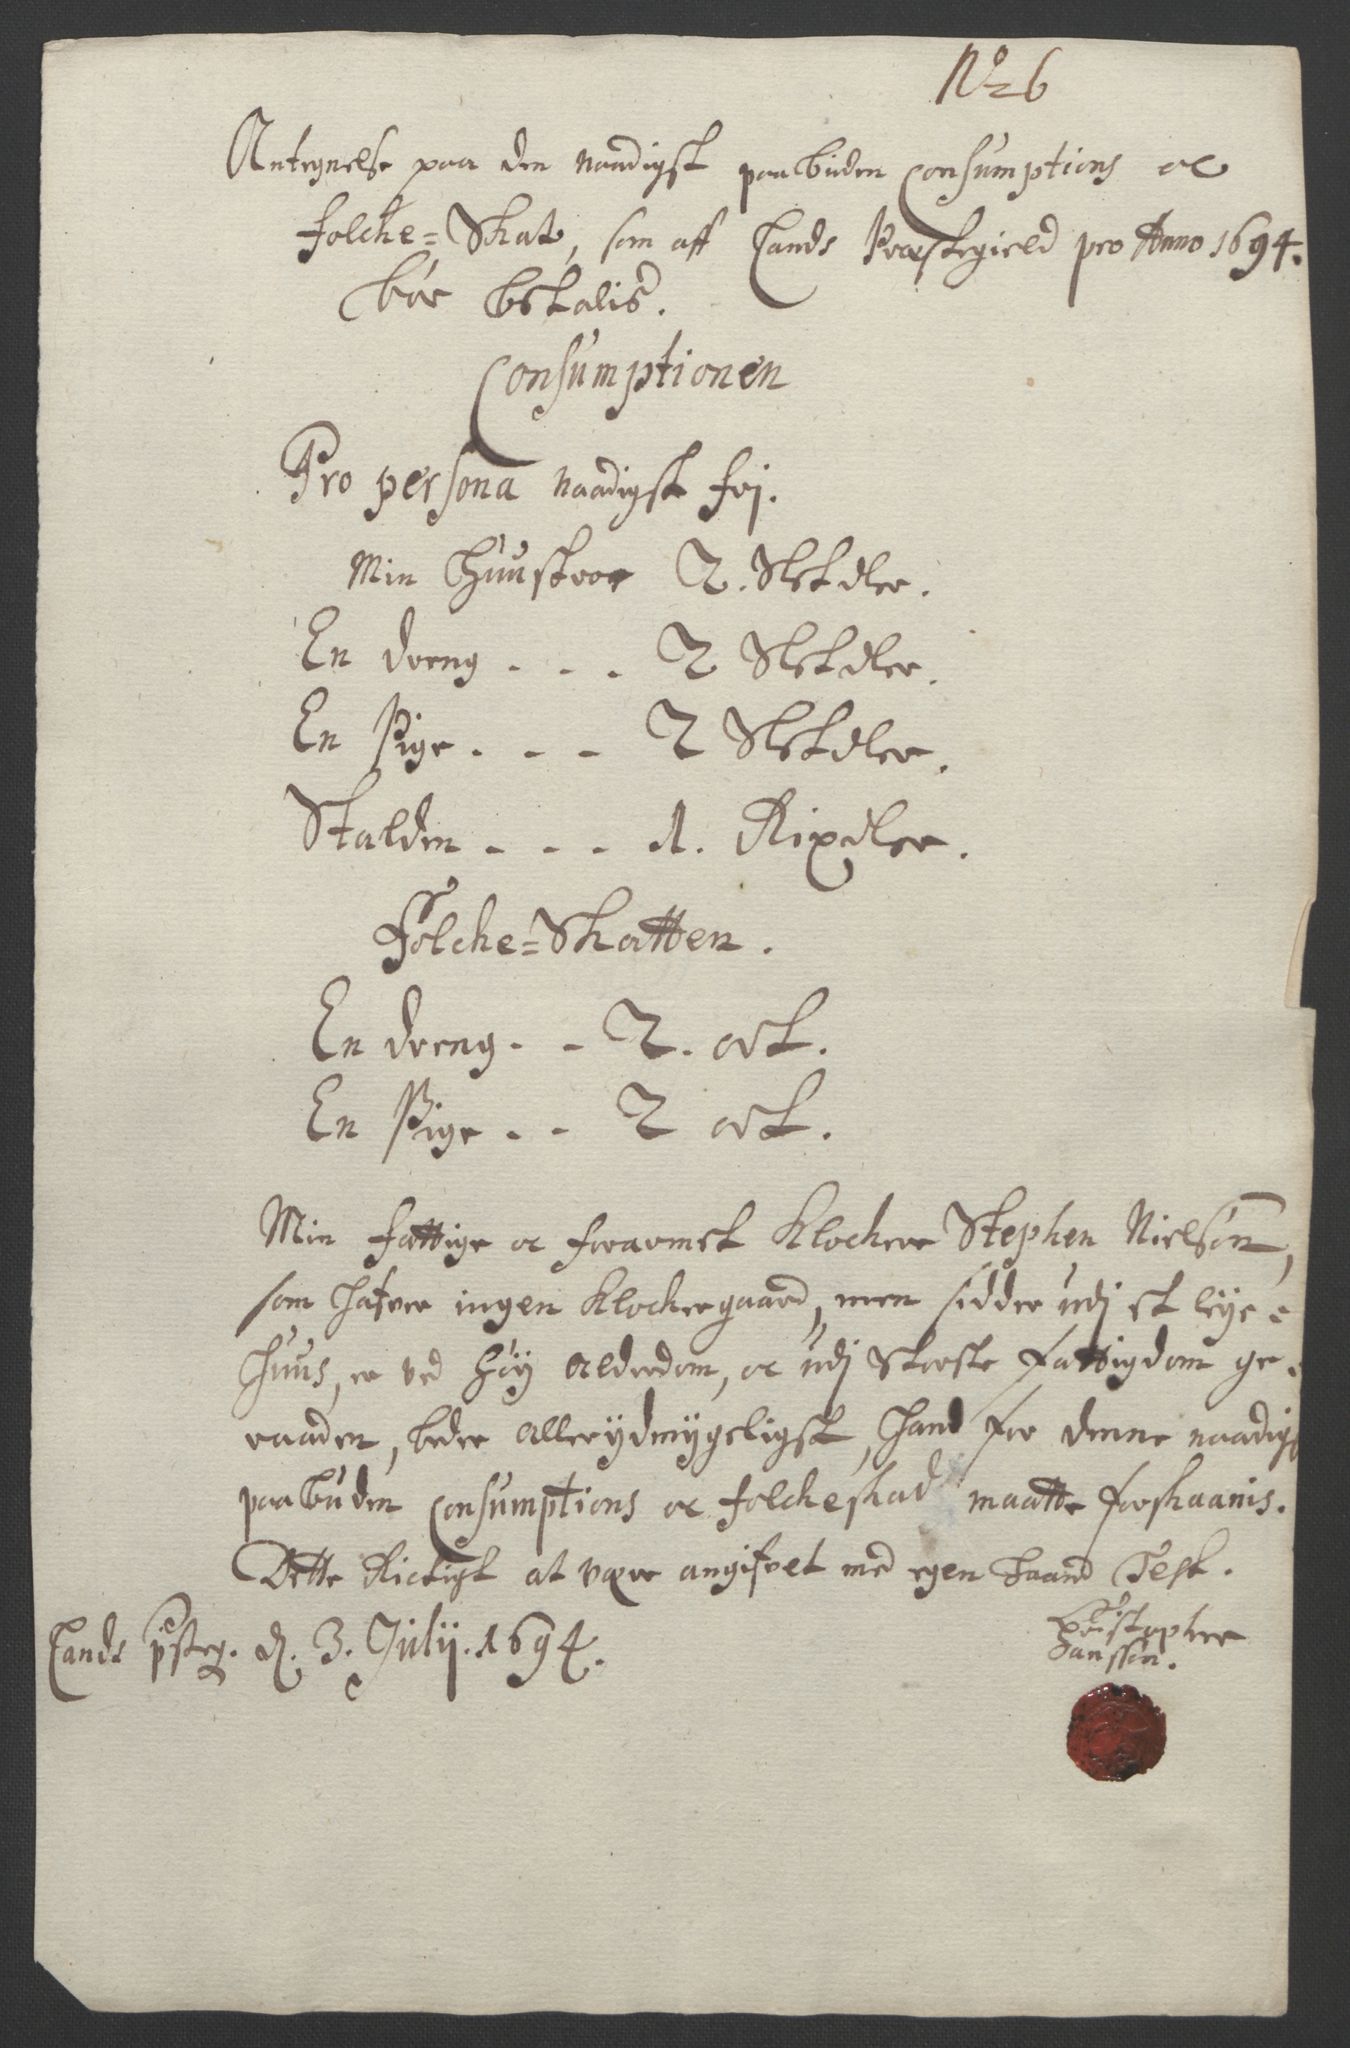 No 6
Antegnelse paa den naadigst paabuden Consumptions oc
folche=Skat, som aff Lands Præstegield pro Anno 1694.
bør betalis.
Consumptionen
Pro persona naadigst frj.
Min Huustroe 2. Sletdler.
En dreng - - - 2 Sletdler.
En Pige - - - 2 Sletdler.
Stalden - - - 1. Rixdler.
Folche=Skatten.
En dreng - - 2. ort.
En Pige - - 2 ort.
Min fattige oc forarmet Klocker Stephen Nielsøn,
som hafver ingen Klockergaard, men sidder udj et leye=
huus, er ved høy Alderdom, oc udj største fattigdom ge=
raaden, beder allerydmygeligst, hand for denne naadigst
paabuden Consumptions oc folcheskad maatte forskaanis.
Dette Rictigt at være angifvet med egen Haand Test.
Christopher
Hanssøn.
Lands psteg. d. 3. Julij. 1694.